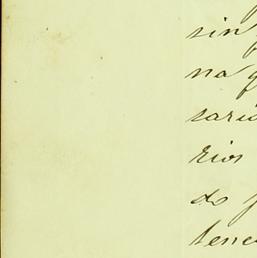 sin
na q
saria
rios
do p
tene